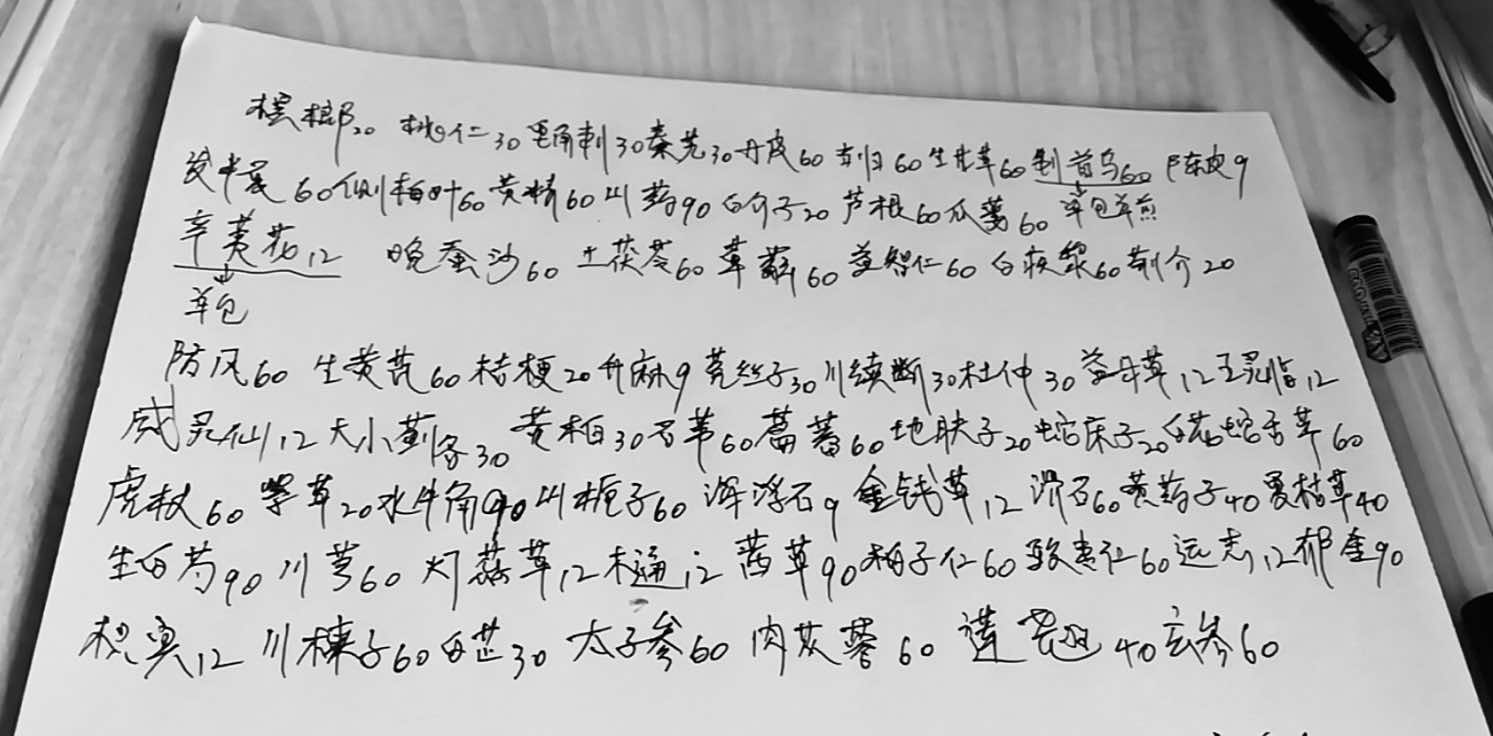 槟榔20 桃仁30 皂角刺30 秦艽30 丹皮60 当归60 生甘草60 制首乌60 陈皮9
法半夏60 侧柏叶60 黄精60 山药90 白介子20 芦根60 瓜蒌60 单包单煎
辛荑花12 晚蚕沙60 土茯苓60 草薢60 益智仁60 白蒺藜60 荆介20
单包
防风60 生黄芪60 桔梗20 升麻9 菟丝子30 川续断30 杜仲30 益母草12 五灵脂12
威灵仙12 大小蓟各30 黄柏30 石苇60 萹蓄60 地肤子20 蛇床子20 白花蛇舌草60
虎杖60 紫草20 水牛角90 山栀子60 浮石9 金钱草12 滑石60 黄药子40 夏枯草40
生白芍90 川芎60 灯芯草12 木通12 茜草90 柏子仁60 酸枣仁60 远志12 郁金90
枳实12 川楝子60 白芷30 太子参60 肉苁蓉60 连翘40 玄参60